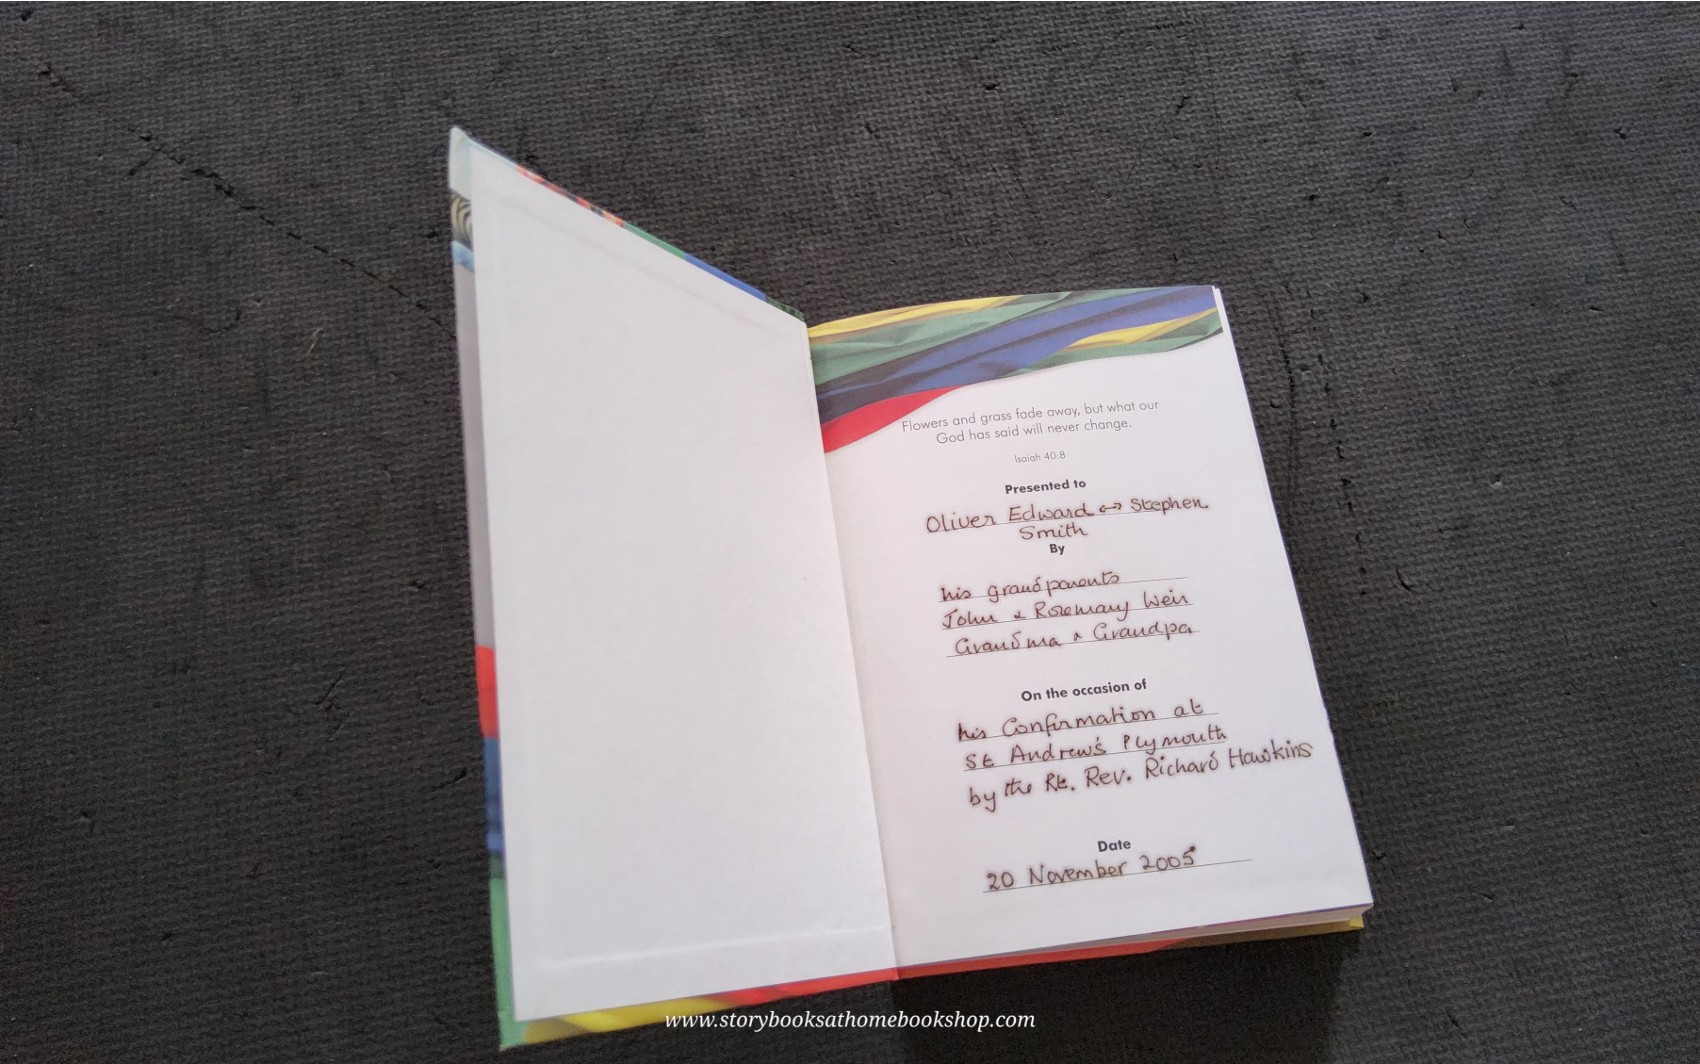 Flowers and grass fade away, but what our
God has said will never change.
Isaiah 40:8
Presented to
Oliver Edward ↔ Stephen
Smith
By
his grandparents
John & Rosemary Weir
Grandma & Grandpa
On the occasion of
his Confirmation at
St Andrew's Plymouth
by the Rt. Rev. Richard Hawkins
Date
20 November 2005
www.storybooksathomebookshop.com